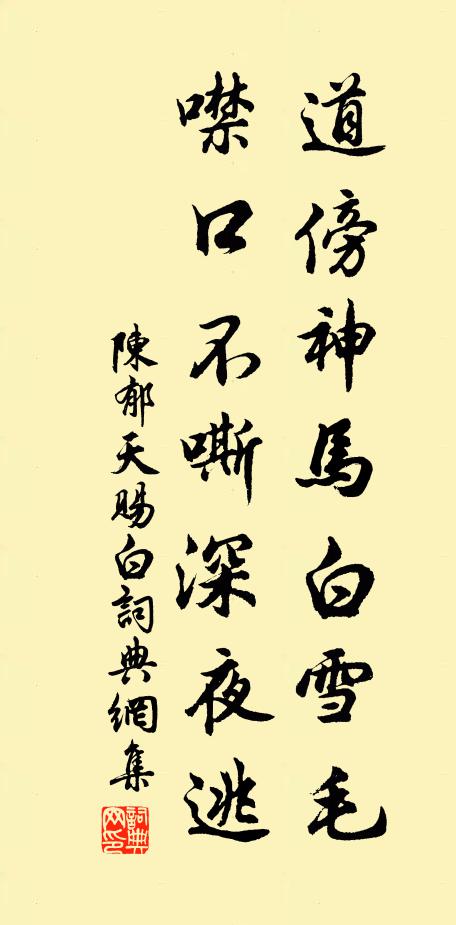 道傍神馬白雪毛
噤口不嘶深夜逃
陳郁天賜白詞典網集
詞典網印